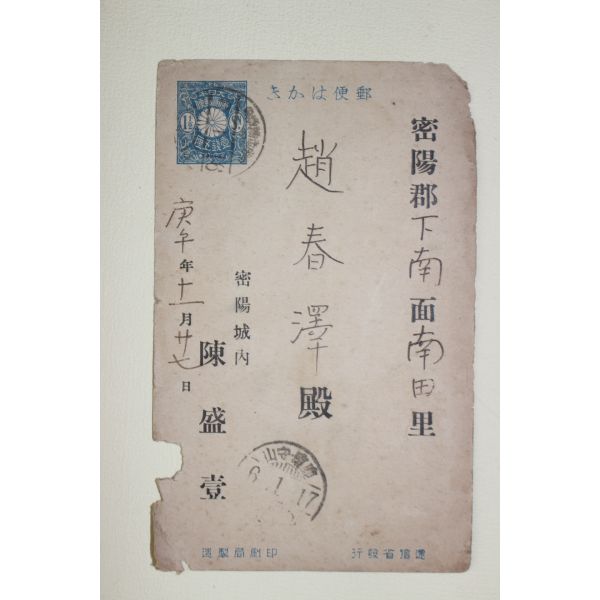 郵便はかき
1½
密陽郡下南面南田里
趙春澤殿
密陽城內
陳盛壹
庚午年十一月廿七日
6.1.17
印刷局製造
遞信省發行